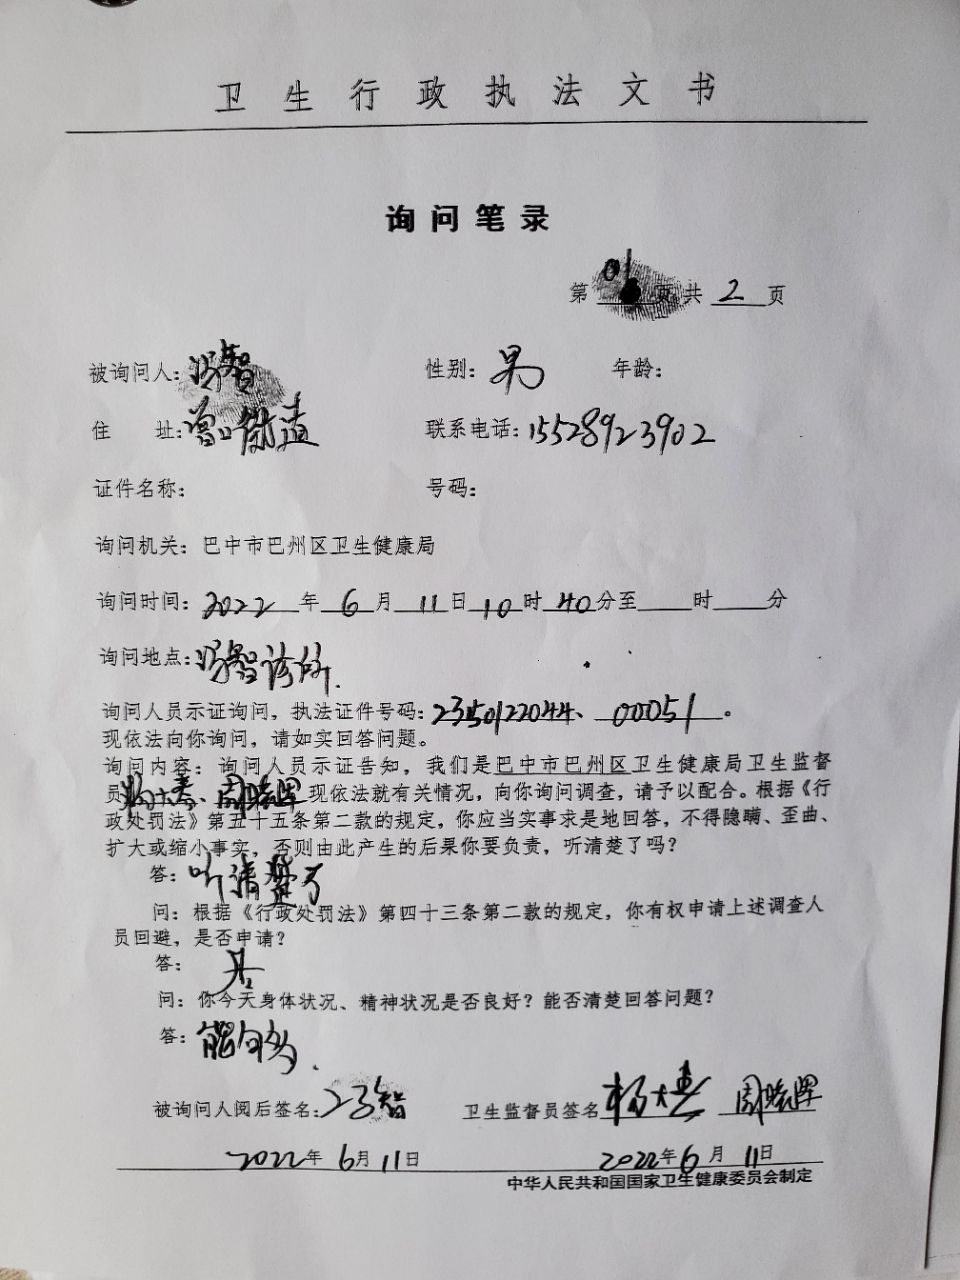 卫生行政执法文书
询问笔录
第 01 页 共 2 页
被询问人：冯智 性别：男 年龄：
住 址：曾口街道 联系电话：15528923902
证件名称： 号码：
询问机关：巴中市巴州区卫生健康局
询问时间：2022年6月11日10时40分至 时 分
询问地点：冯智诊所.
询问人员示证询问，执法证件号码：2350122044、00051。
现依法向你询问，请如实回答问题。
询问内容：询问人员示证告知，我们是巴中市巴州区卫生健康局卫生监督
员杨大春、周晓晖现依法就有关情况，向你询问调查，请予以配合。根据《行
政处罚法》第五十五条第二款的规定，你应当实事求是地回答，不得隐瞒、歪曲、
扩大或缩小事实，否则由此产生的后果你要负责，听清楚了吗？
答：听清楚了
问：根据《行政处罚法》第四十三条第二款的规定，你有权申请上述调查人
员回避，是否申请？
答：否
问：你今天身体状况、精神状况是否良好？能否清楚回答问题？
答：能够.
被询问人阅后签名：冯智 卫生监督员签名 杨大春 周晓晖
2022年6月11日 2022年6月11日
中华人民共和国国家卫生健康委员会制定